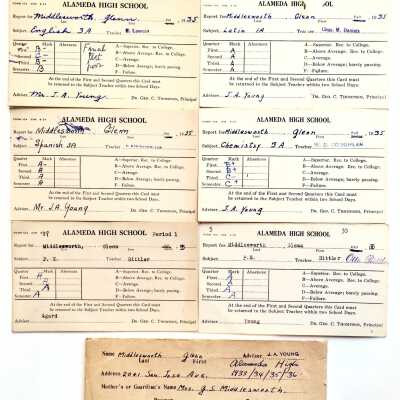 ALAMEDA HIGH SCHOOL
Report for Middlesworth, Glenn 1935
Subject English 3A
Quarter Mark Absences A—Superior. Rec. to College.
First B—Above Average. Rec. to College.
Second C—Average.
Third B- D—Below Average; barely passing.
Semester B F—Failure.
Final
At the end of the First and Second Quarters this Card must be
returned to the Subject Teacher within two School Days.
Mr. J.A. Young
Adviser Dr. Geo. C. Thompson, Principal
ALAMEDA HIGH SCHOOL
Report for Middlesworth Glenn 1935
Subject Latin Teacher
Quarter Mark Absences A—Superior. Rec. to College.
First A B—Above Average. Rec. to College.
Second A C—Average.
Third A D—Below Average; barely passing.
Semester A F—Failure.
At the end of the First and Second Quarters this Card must be
returned to the Subject Teacher within two School Days.
J.A. Young
Adviser Dr. Geo. C. Thompson, Principal
ALAMEDA HIGH SCHOOL
Report for Middlesworth Glenn 1935
Subject Spanish 3A
Quarter Mark Absences A—Superior. Rec. to College.
First A- B—Above Average. Rec. to College.
Second A- C—Average.
Third A D—Below Average; barely passing.
Semester A F—Failure.
At the end of the First and Second Quarters this Card must be
returned to the Subject Teacher within two School Days.
Mr. J.A. Young
Adviser Dr. Geo. C. Thompson, Principal
ALAMEDA HIGH SCHOOL
Report for Middlesworth Glenn 1935
Subject Chemistry 3A Teacher
Quarter Mark Absences A—Superior. Rec. to College.
First B+ B—Above Average. Rec. to College.
Second C—Average.
Third D—Below Average; barely passing.
Semester C+ F—Failure.
At the end of the First and Second Quarters this Card must be
returned to the Subject Teacher within two School Days.
J.A. Young
Adviser Dr. Geo. C. Thompson, Principal
ALAMEDA HIGH SCHOOL Period 1
Report for Middlesworth, Glenn
Subject P.E. Teacher Rittler
Quarter Mark Absences A—Superior. Rec. to College.
First B—Above Average. Rec. to College.
Second A C—Average.
Third A D—Below Average; barely passing.
Semester A F—Failure.
At the end of the First and Second Quarters this Card must be
returned to the Subject Teacher within two School Days.
Adviser Dr. Geo. C. Thompson, Principal
ALAMEDA HIGH SCHOOL
Report for Middlesworth, Glenn
Subject P.E. Teacher Rittler
Quarter Mark Absences A—Superior. Rec. to College.
First A B—Above Average. Rec. to College.
Second A C—Average.
Third A D—Below Average; barely passing.
Semester A F—Failure.
At the end of the First and Second Quarters this Card must be
returned to the Subject Teacher within two School Days.
Young
Adviser Dr. Geo. C. Thompson, Principal
Name Middlesworth Glenn Adviser J.A. YOUNG
Last First Alameda High
Address 2021 San Jose Ave. 1933/34/35/36
Mother's or Guardian's Name Mrs. G.S. Middlesworth.